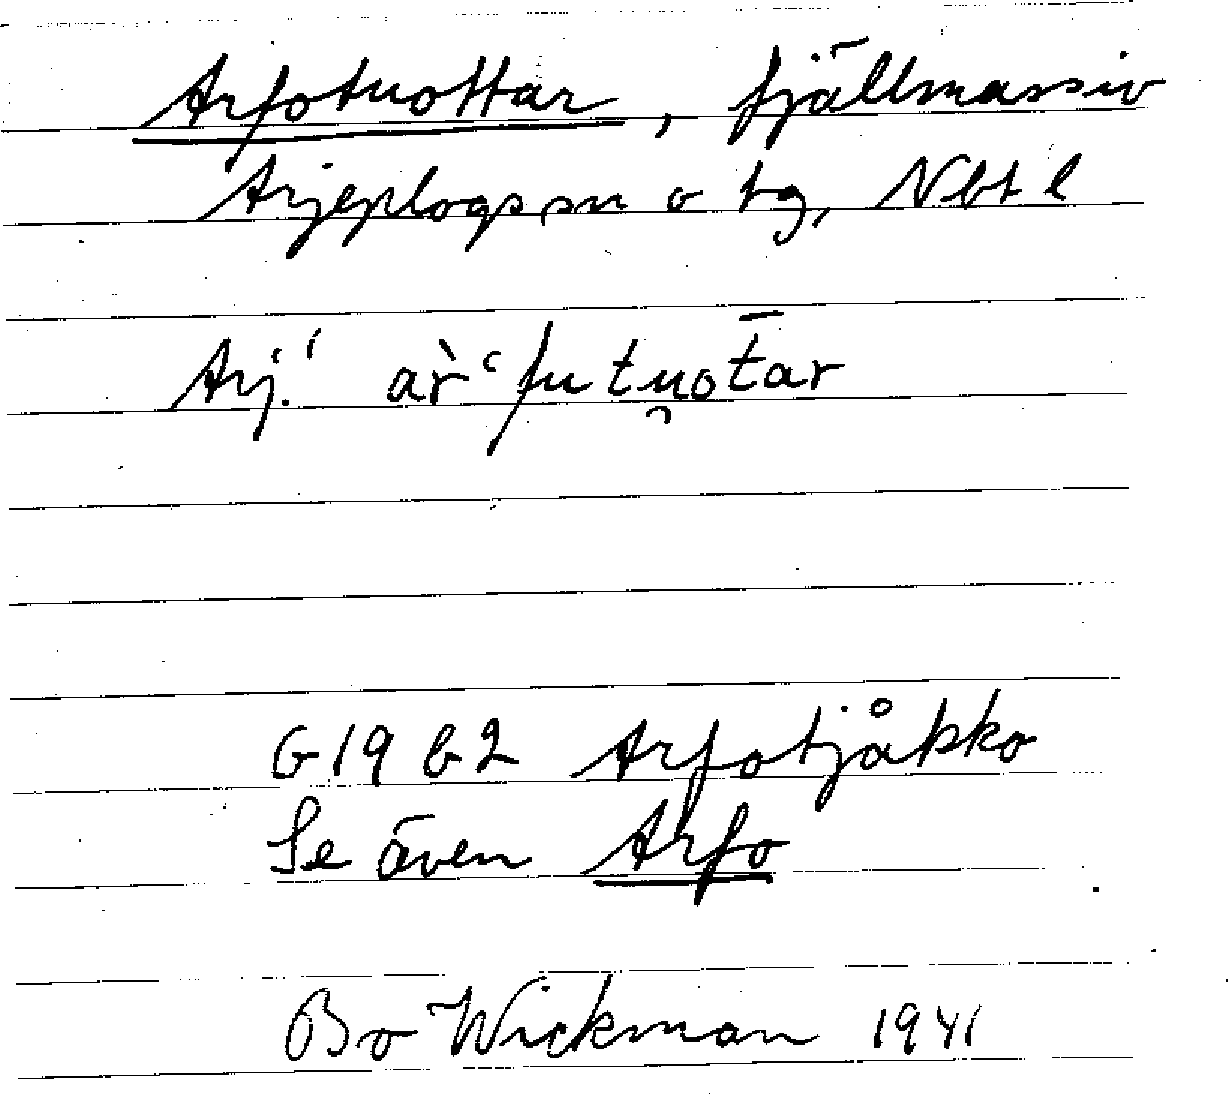 Arfotuottar, fjällmassiv
Arjeplogs sn o tg, Nbt l
Arj.' ar̀ʿfu tu̯ot̄ar
G 19 b 2 Arfotjåkko
Se även Arfo
Bo Wickman 1941